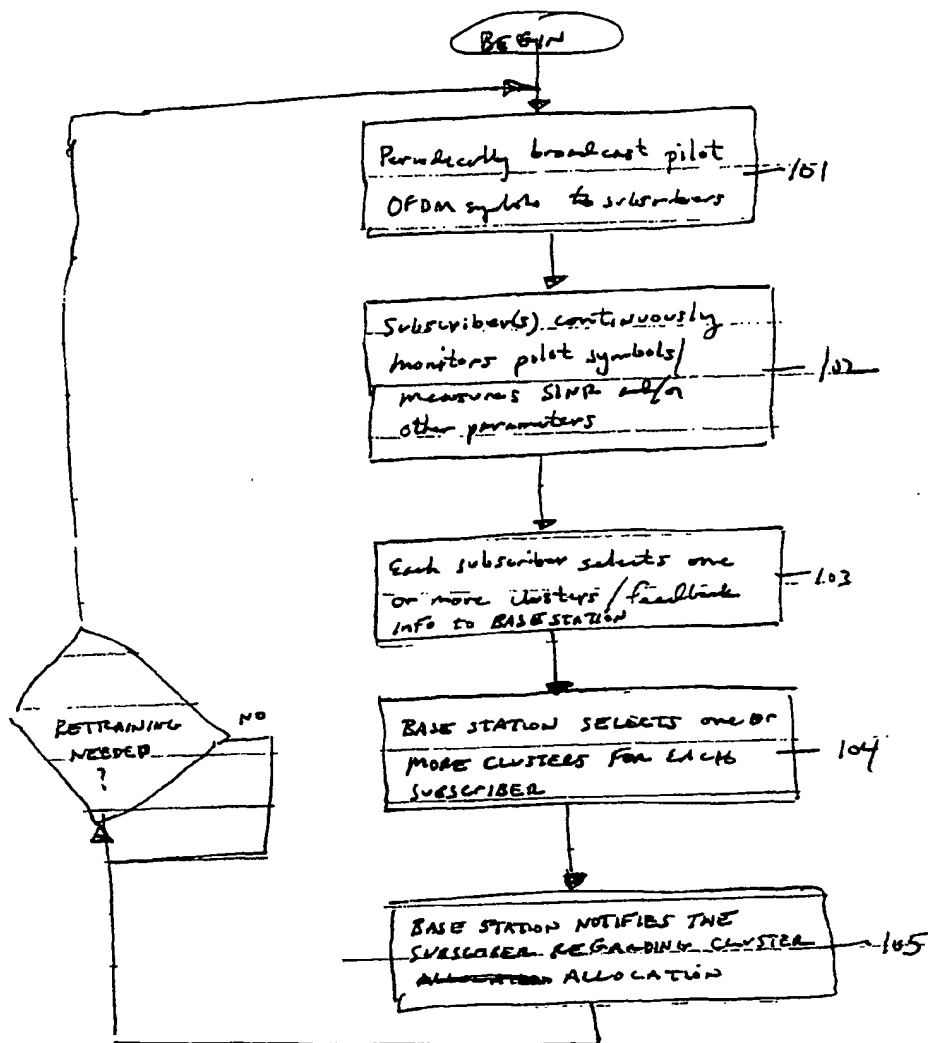 BEGIN
Periodically broadcast pilot
OFDM symbols to subscribers
101
Subscriber(s) continuously
monitors pilot symbols/
measures SINR and/or
other parameters
102
Each subscriber selects one
or more clusters/feedback
info to BASE STATION
103
BASE STATION SELECTS one or
MORE CLUSTERS FOR EACH
SUBSCRIBER
104
BASE STATION NOTIFIES THE
SUBSCRIBER REGRADING CLUSTER
ALLOCATION
105
RETRAINING
NEEDED
?
NO